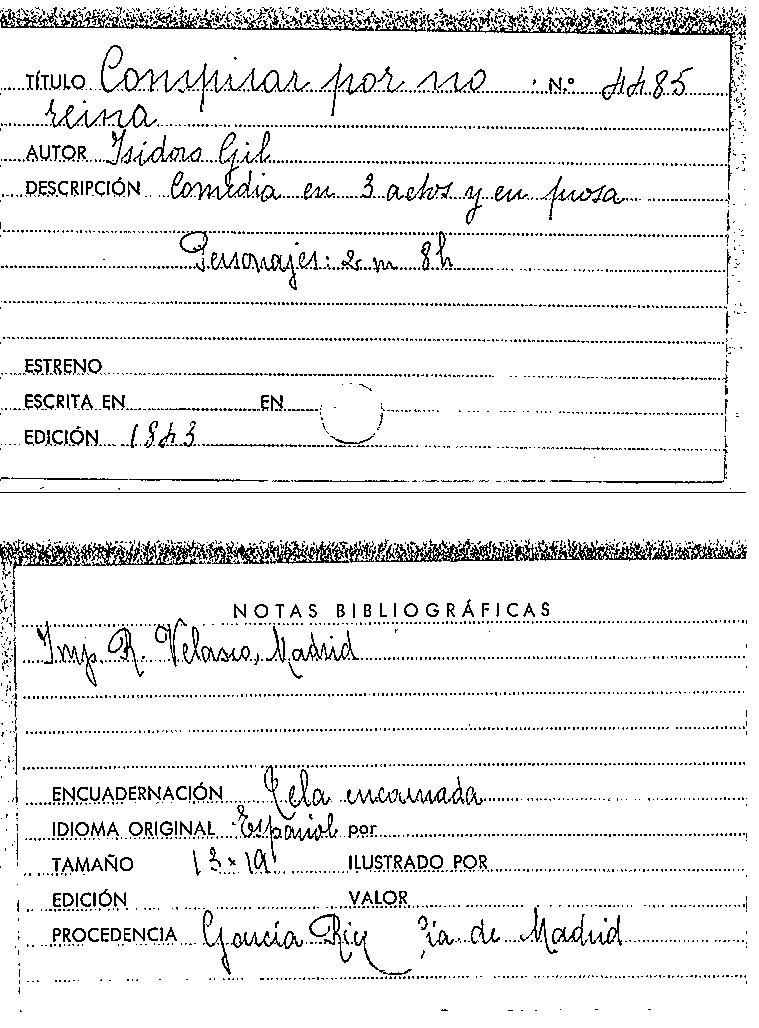 TÍTULO Conspirar por no N.º 4485
reina
AUTOR Isidoro Gil
DESCRIPCIÓN Comedia en 3 actos y en prosa
Personajes: 2 m 8h
ESTRENO
ESCRITA EN EN
EDICIÓN 1843
NOTAS BIBLIOGRÁFICAS
Imp. R. Velasco, Madrid
ENCUADERNACIÓN Tela encarnada
IDIOMA ORIGINAL Español por
TAMAÑO 13 x 19 ILUSTRADO POR
EDICIÓN VALOR
PROCEDENCIA García de Madrid